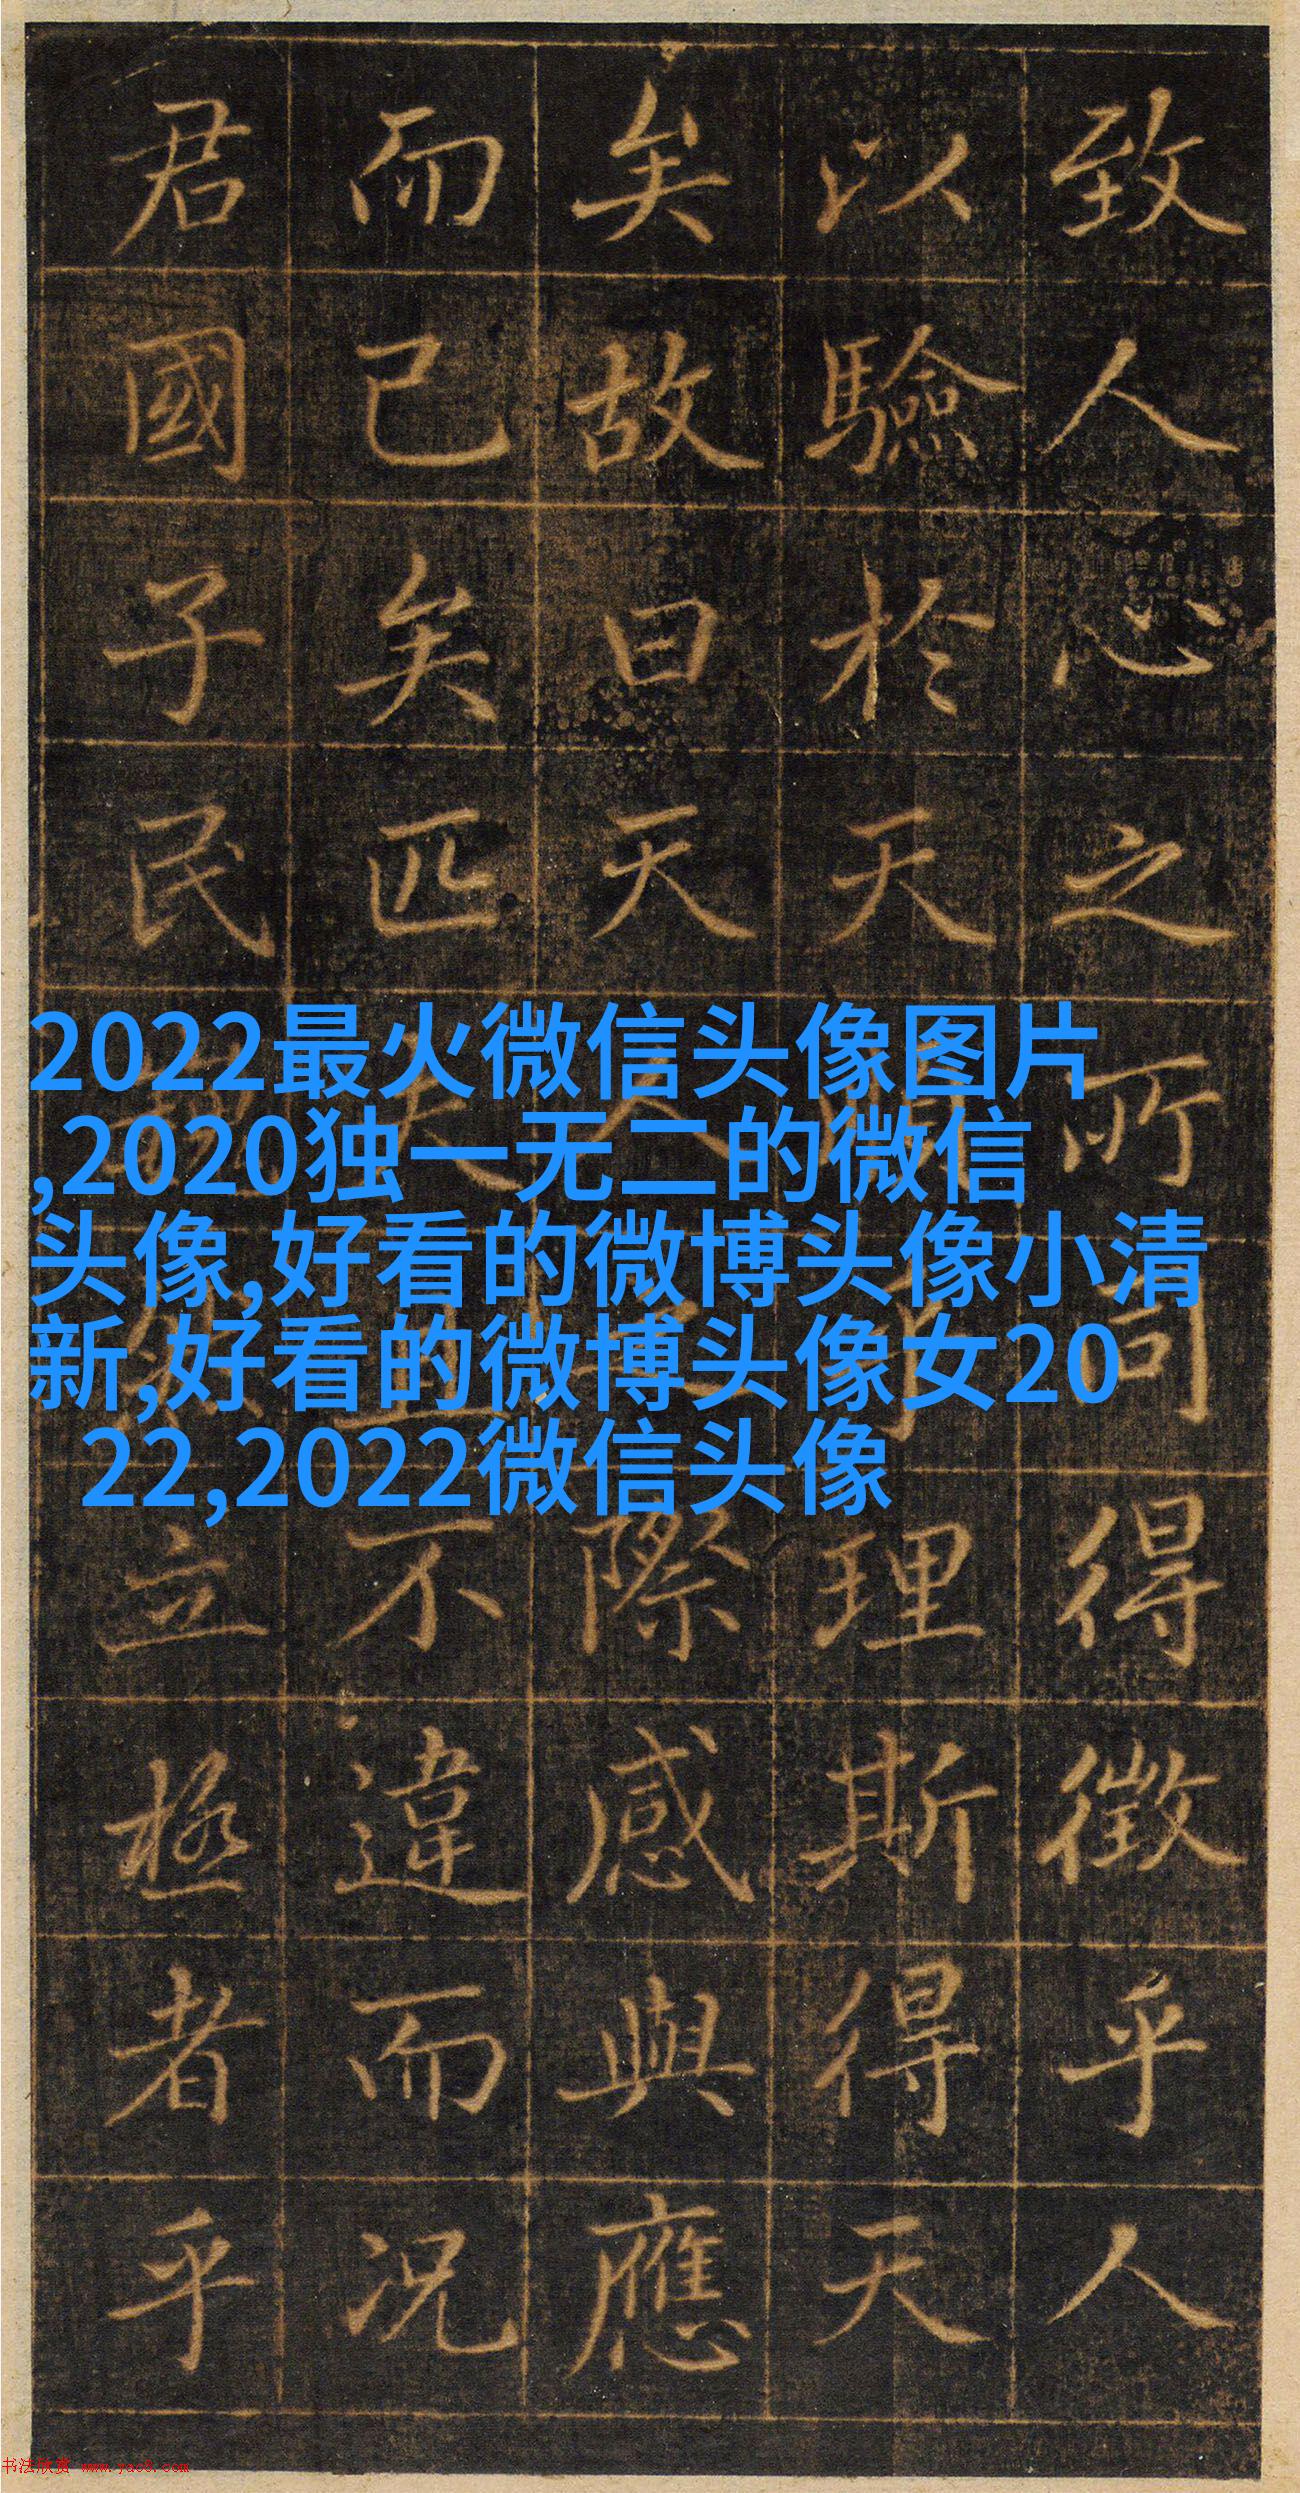 致人心之所得徵乎人
以驗於天理斯得天
矣故曰天人際感與應
而已矣匹夫不違而况
君國子民立極者乎
2022最火微信头像图片
,2020独一无二的微信
头像,好看的微博头像小清
新,好看的微博头像女20
22,2022微信头像
书法欣赏 www.yac8.com